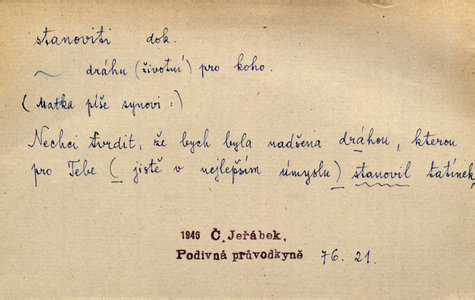 stanoviti dok.
~ dráhu (životní) pro koho.
(Matka píše synovi:)
Nechci tvrdit, že bych byla nadšena dráhou, kterou
pro Tebe (jistě v nejlepším úmyslu) stanovil tatínek
1946 Č. Jeřábek,
Podivná průvodkyně 76. 21.